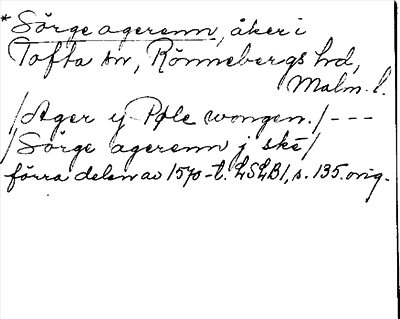 *Sörge agerenn, åker i
Tofta sn, Rönnebergs hd,
Malm. l.
/Ager y Pole wongen./ - - -
/Sörge agerenn j ske/
förra delen av 1570-t. LSLB1, s. 135. orig.